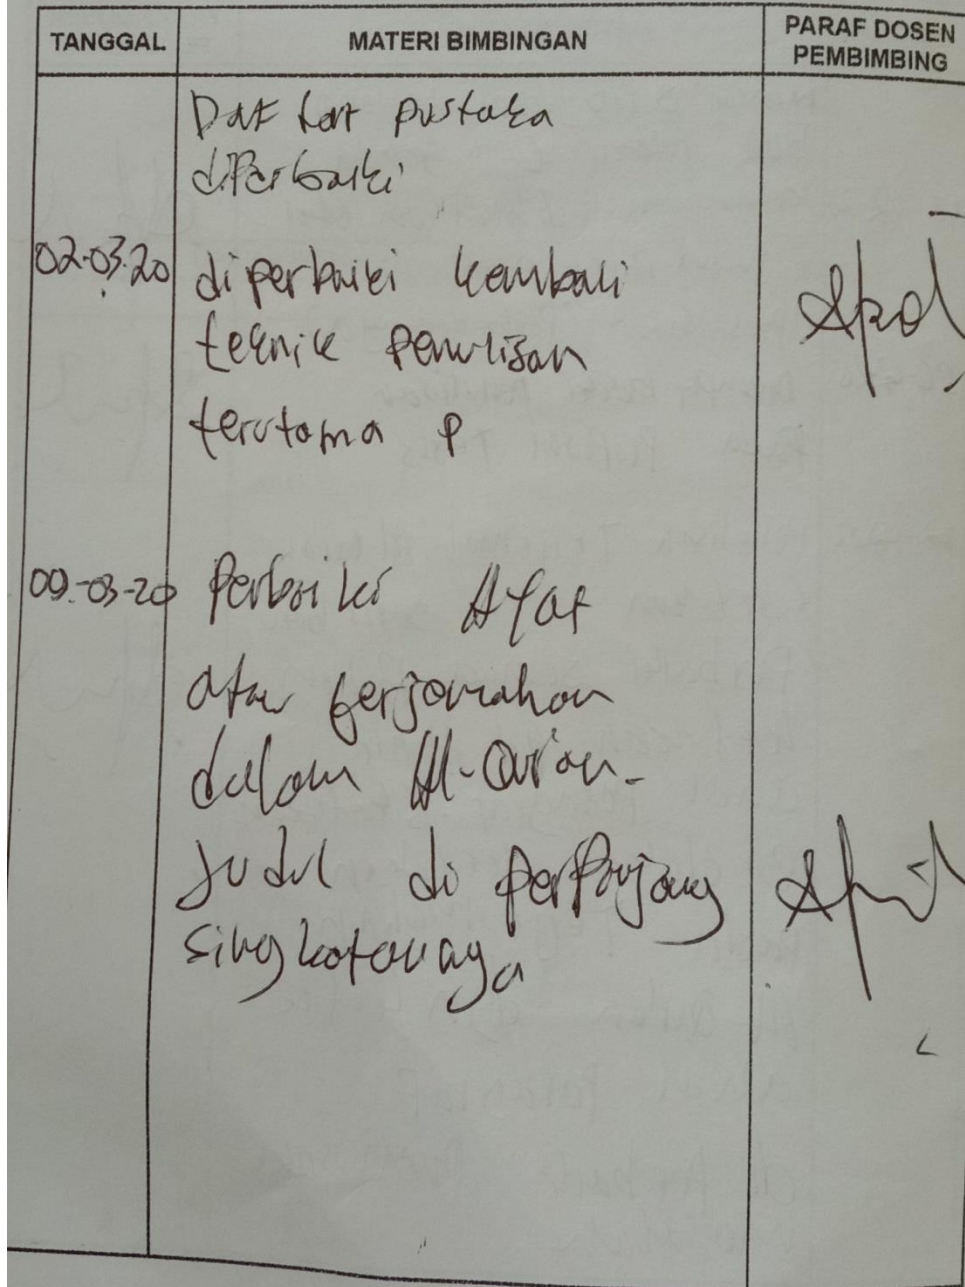 TANGGAL MATERI BIMBINGAN PARAF DOSEN PEMBIMBING
Daftar pustaka
diperbaiki
02-03-20 diperbaiki kembali
teknik penulisan
terutama P
09-03-20 Perbaiki Ayat
atau terjemahan
dalam Al-Qur'an
Judul di perpanjang
singkatannya